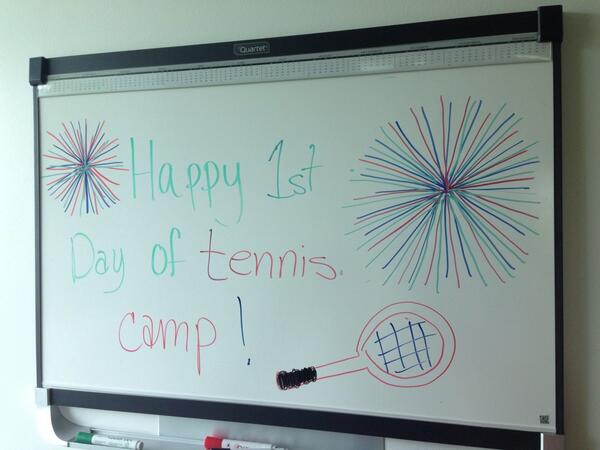 Quartet
Happy 1st
Day of tennis.
camp!